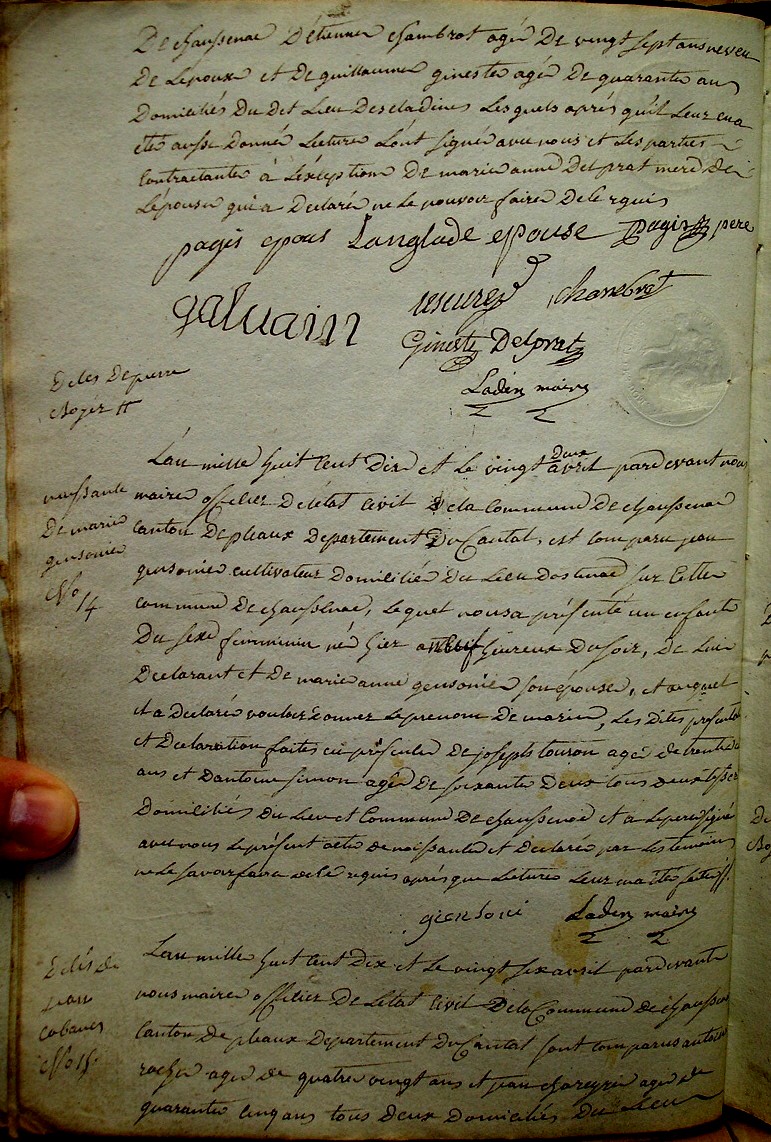 De chaussenac D'étienne chambrot agé De vingt sept ans neveu
De Lepoux et De guillaumes gineste agé De quarante ans
Domiciliés Du Dit Lieu Descladines Lesquels aprés quil Leur en a
eté aussi Donné Lecture L'ont signé avec nous et Les parties
Contractantes à L'éxception De marie anne Delprat mere De
Lépouse qui a Declaré ne Le pouvoir faire De le requis
pagis epous Langlade epouse Pagis pere
galvain Chambrot
Gineste Delprat
Ladén maire
Decés De pierre
Bogér
L'an mille huit Cent Dix et Le vingt Deux avril pardevant nous
maire officier De létat Civil De la Commune De chaussenac
Canton De pleaux Departement Du Cantal, est Comparu jean
gensonie Cultivateur Domicilié Du Lieu Dostenac sur Cette
Commune De chaussenac, Lequel nous a présenté un enfant
Du sexe femminin né hier a neuf heures Du soir, De Lui
Declarant et De marie anne gensonie son épouse, et auquel
il a Declaré vouloir Donner Le prenom De marie, Les Dites présentes
et Declaration faites en présence De joseph touron agé De trente
ans et Dantoine simon agé De soixante Deux tous Deux
Domiciliés Du Lieu et Commune De chaussenac et a Le pere signé
avec nous Le présent acte De naissance et Declaré par Les temoins
ne Le savoir faire De le requis aprés que Lecture Leur en a été faite
naissance
De marie
gensonie
No 14
giensoni Ladén maire
L'an mille huit Cent Dix et Le vingt six avril pardevant
nous maire officier De Létat Civil De la Commune De chaussenac
Canton De pleaux Departement Du Cantal sont Comparus antoine
rocher agé de quatre vingt ans et jean chareyre agé de
quarante Cinq ans tous Deux Domiciliés Du Lieu
Decés de
jean
Cabanes
No 15